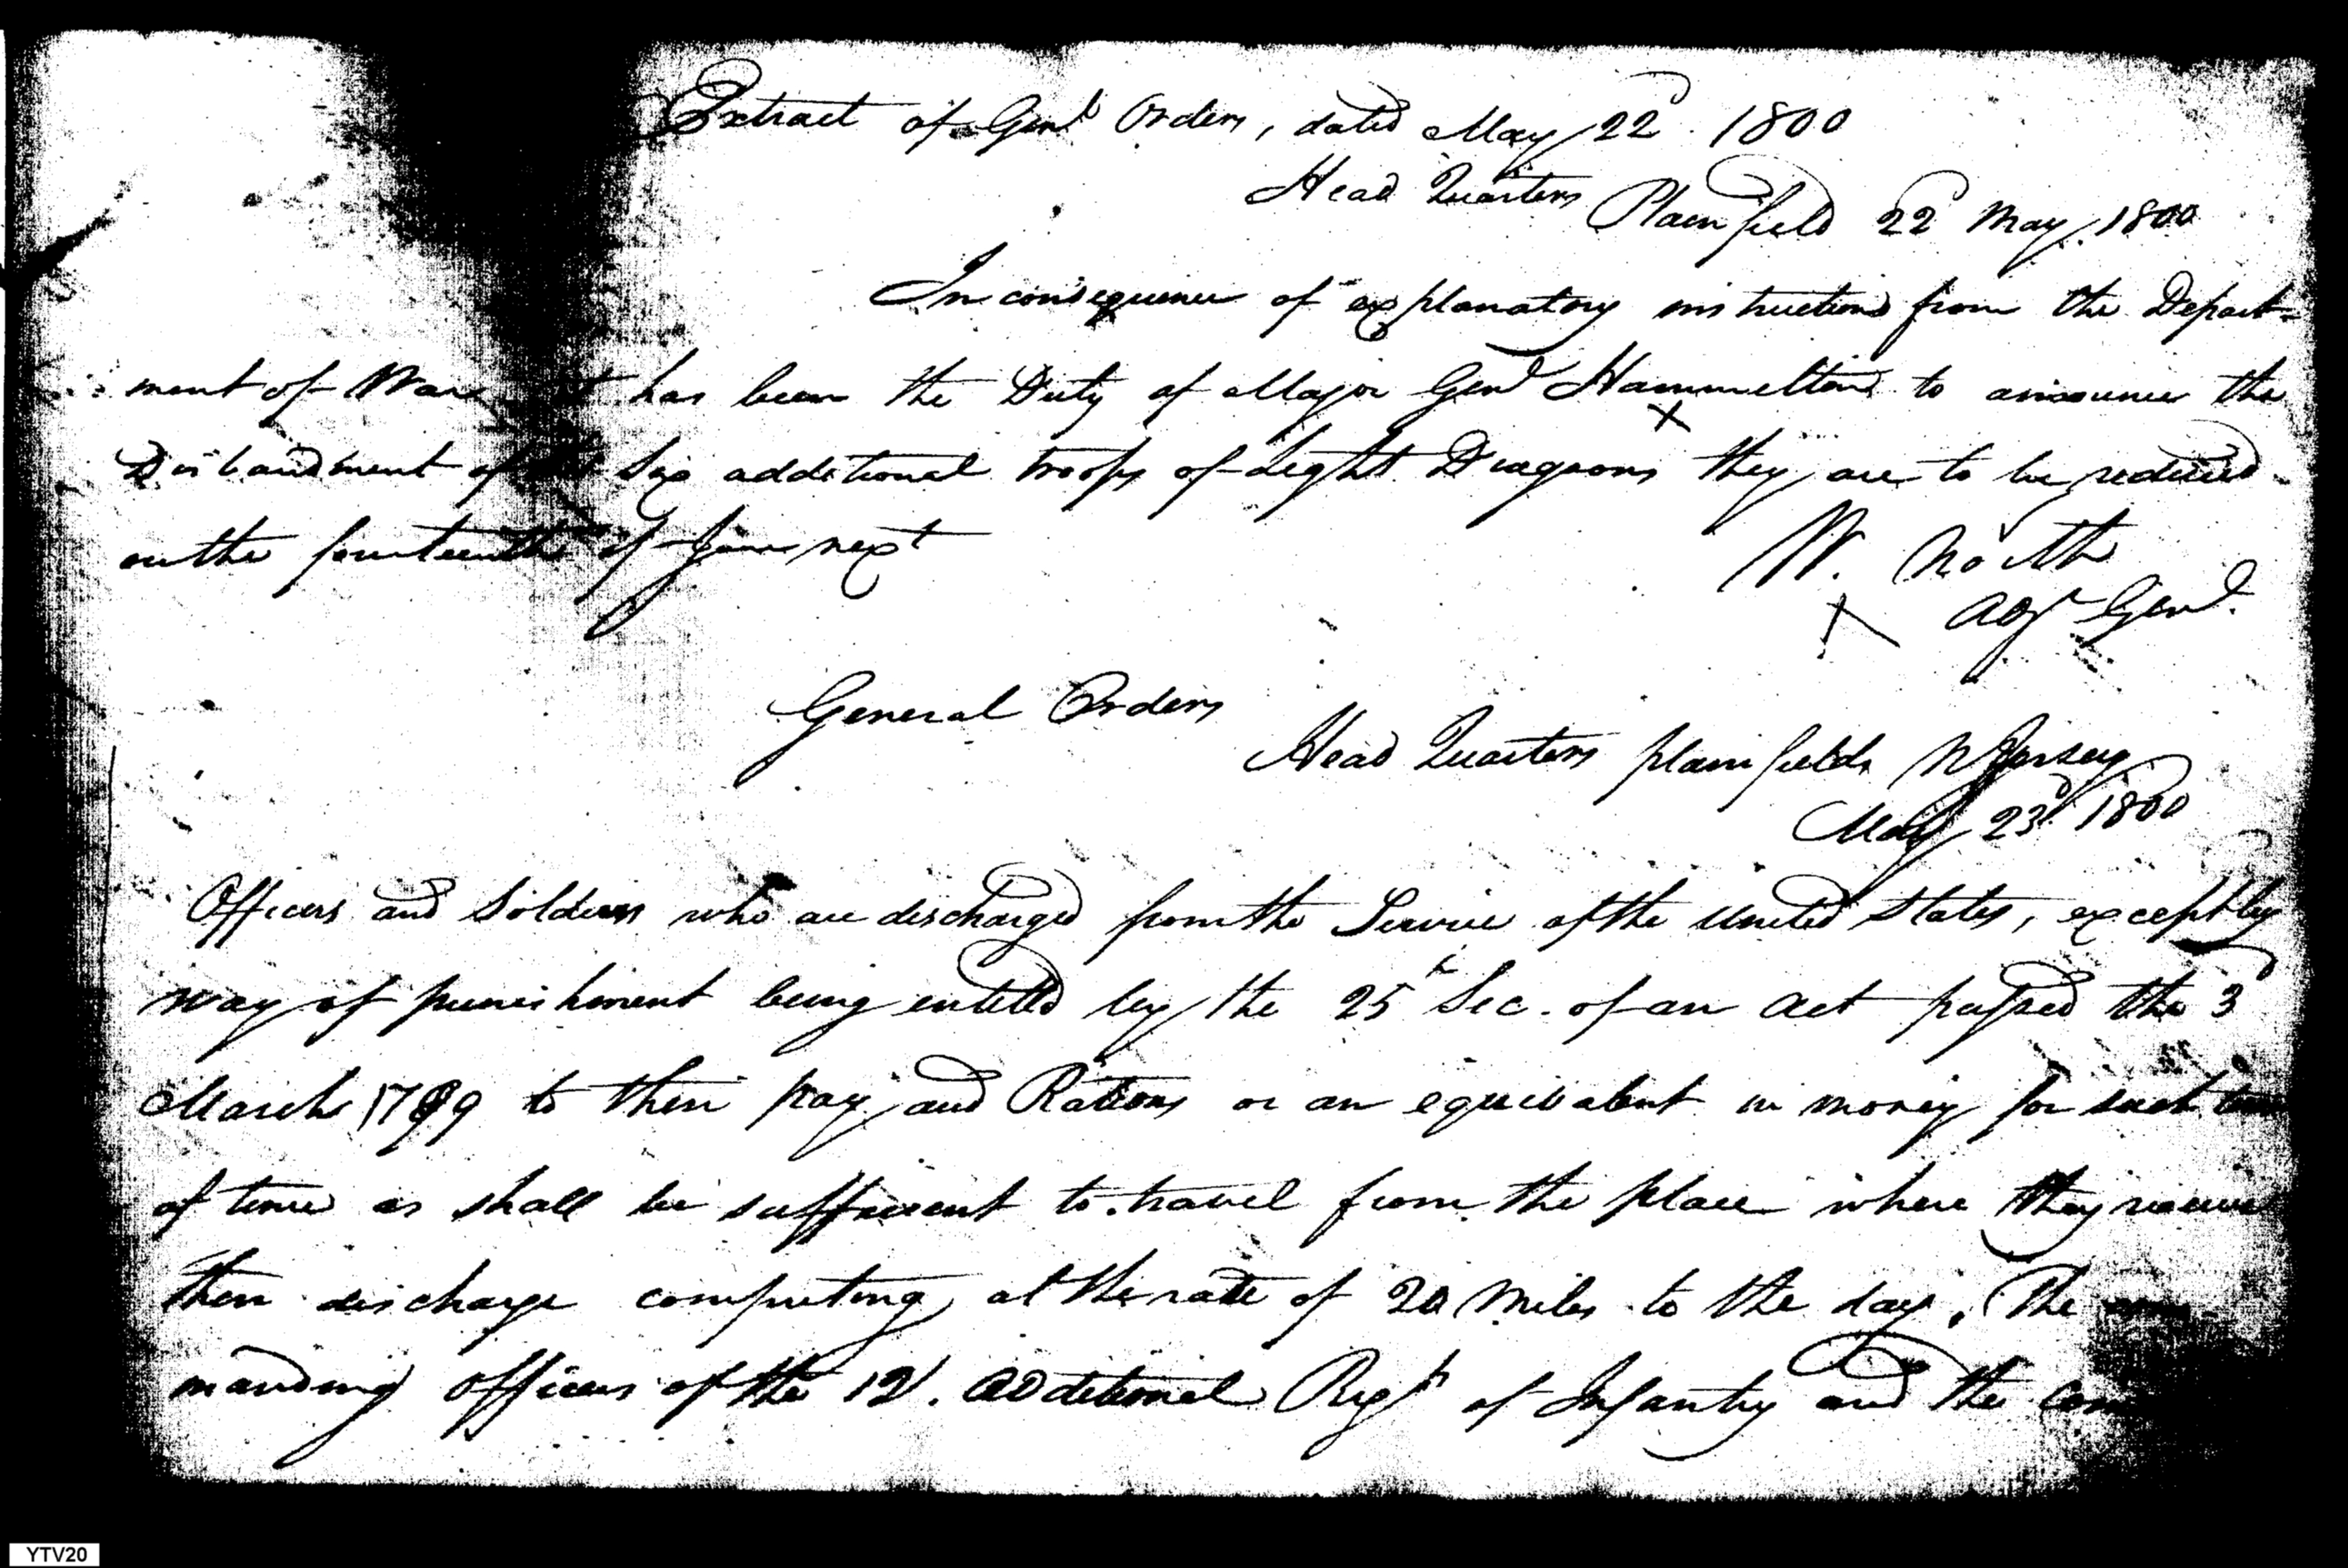 Extract of Genl Orders, dated May 22d 1800
Head Quarters Plainfield 22d May 1800
In consequence of explanatory instructions from the Depart=
ment of War it has been the Duty of Major Genl Hammelton to announce the
Disbandment of the Six additional troops of Light Dragoons they are to be reduced
on the fourteenth of June next
W. North
Adjt Genl.
General Orders
Head Quarters plainfields N Jersey
May 23d 1800
Officers and Soldiers who are discharged from the Service of the United States, except by
way of punishment being entitled by the 25th Sec. of an act passed the 3d
March 1799 to their pay and Rations or an equivalent in money for such
of time as shall be sufficient to travel from the place where they receive
their discharge computing at the rate of 20 Miles to the day. The
manding officers of the 12. Additional Regts of Infantry and the com
YTV20